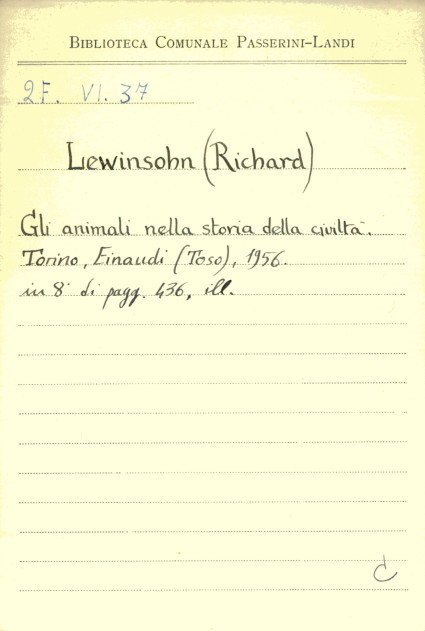 BIBLIOTECA COMUNALE PASSERINI-LANDI
2F. VI. 37
Lewinsohn (Richard)
Gli animali nella storia della civiltà.
Torino, Einaudi (Toso), 1956.
in 8° di pagg. 436, ill.
C